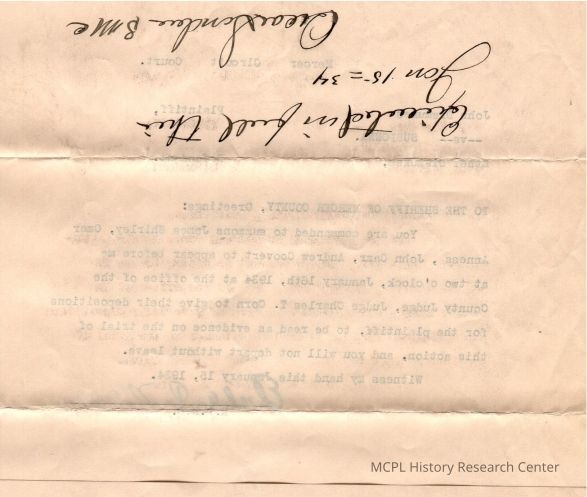 Executed in full this
Jan 15 = 34
S M C
Mercer Circuit Court.
John Plaintiff,
--vs-- SUBPOENA.
TO THE SHERIFF OF MERCER COUNTY, Greetings:
You are commanded to summons James Shirley, Omer
Anness, John Carr, Andrew Coovert to appear before me
at two o'clock, January 16th, 1934 at the office of the
County Judge, Judge Charles T. Corn to give their depositions
for the plaintiff, to be read as evidence on the trial of
this action, and you will not depart without leave.
Witness my hand this January 15, 1934.
MCPL History Research Center